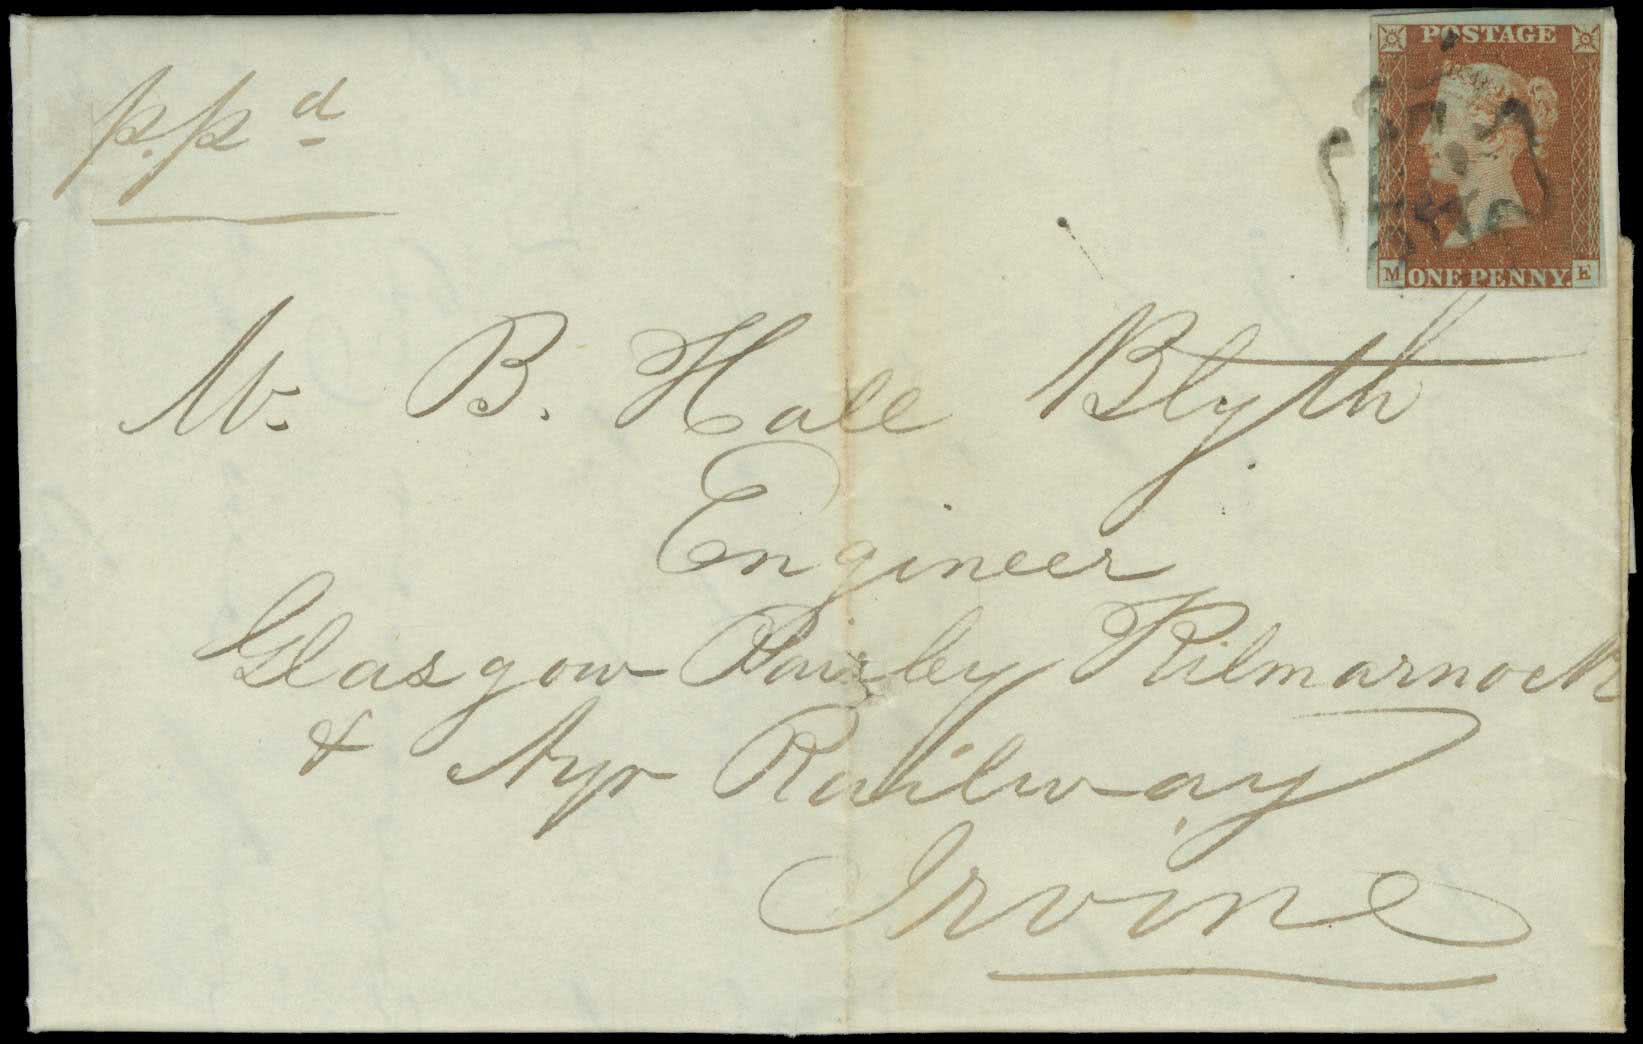 POSTAGE
p.pd
M ONE PENNY. E
Mr. B. Hall Blyth
Engineer
Glasgow Paisley Kilmarnock
& Ayr Railway
Irvine